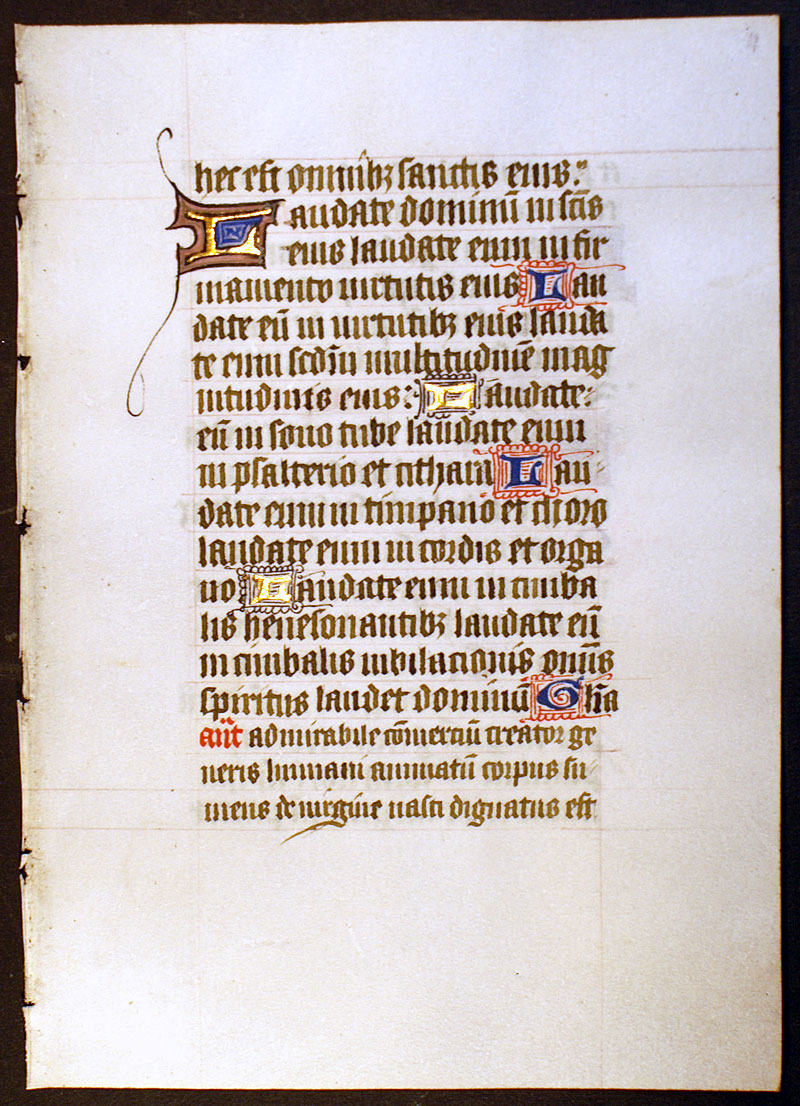 hec est omnibꝫ sanctis eius.
Laudate dominū in scīs
eius laudate eum in fir
mamento virtutis eius Lau
date eū in virtutibꝫ eius lauda
te eum scdm̄ multitudinē mag
nitudinis eius: Laudate:
eū in sono tube laudate eum
in psalterio et cithara Lau-
date eum in timpano et choro
laudate eum in cordis et orga
no Laudate eum in cimba
lis benesonantibꝫ laudate eū
in cimbalis iubilacionis omīs
spiritus laudet dominū Glīa
ant̄ admirabile cōmerciū creator ge
neris humani animatū corpus su-
mens de virgine nasci dignatus est